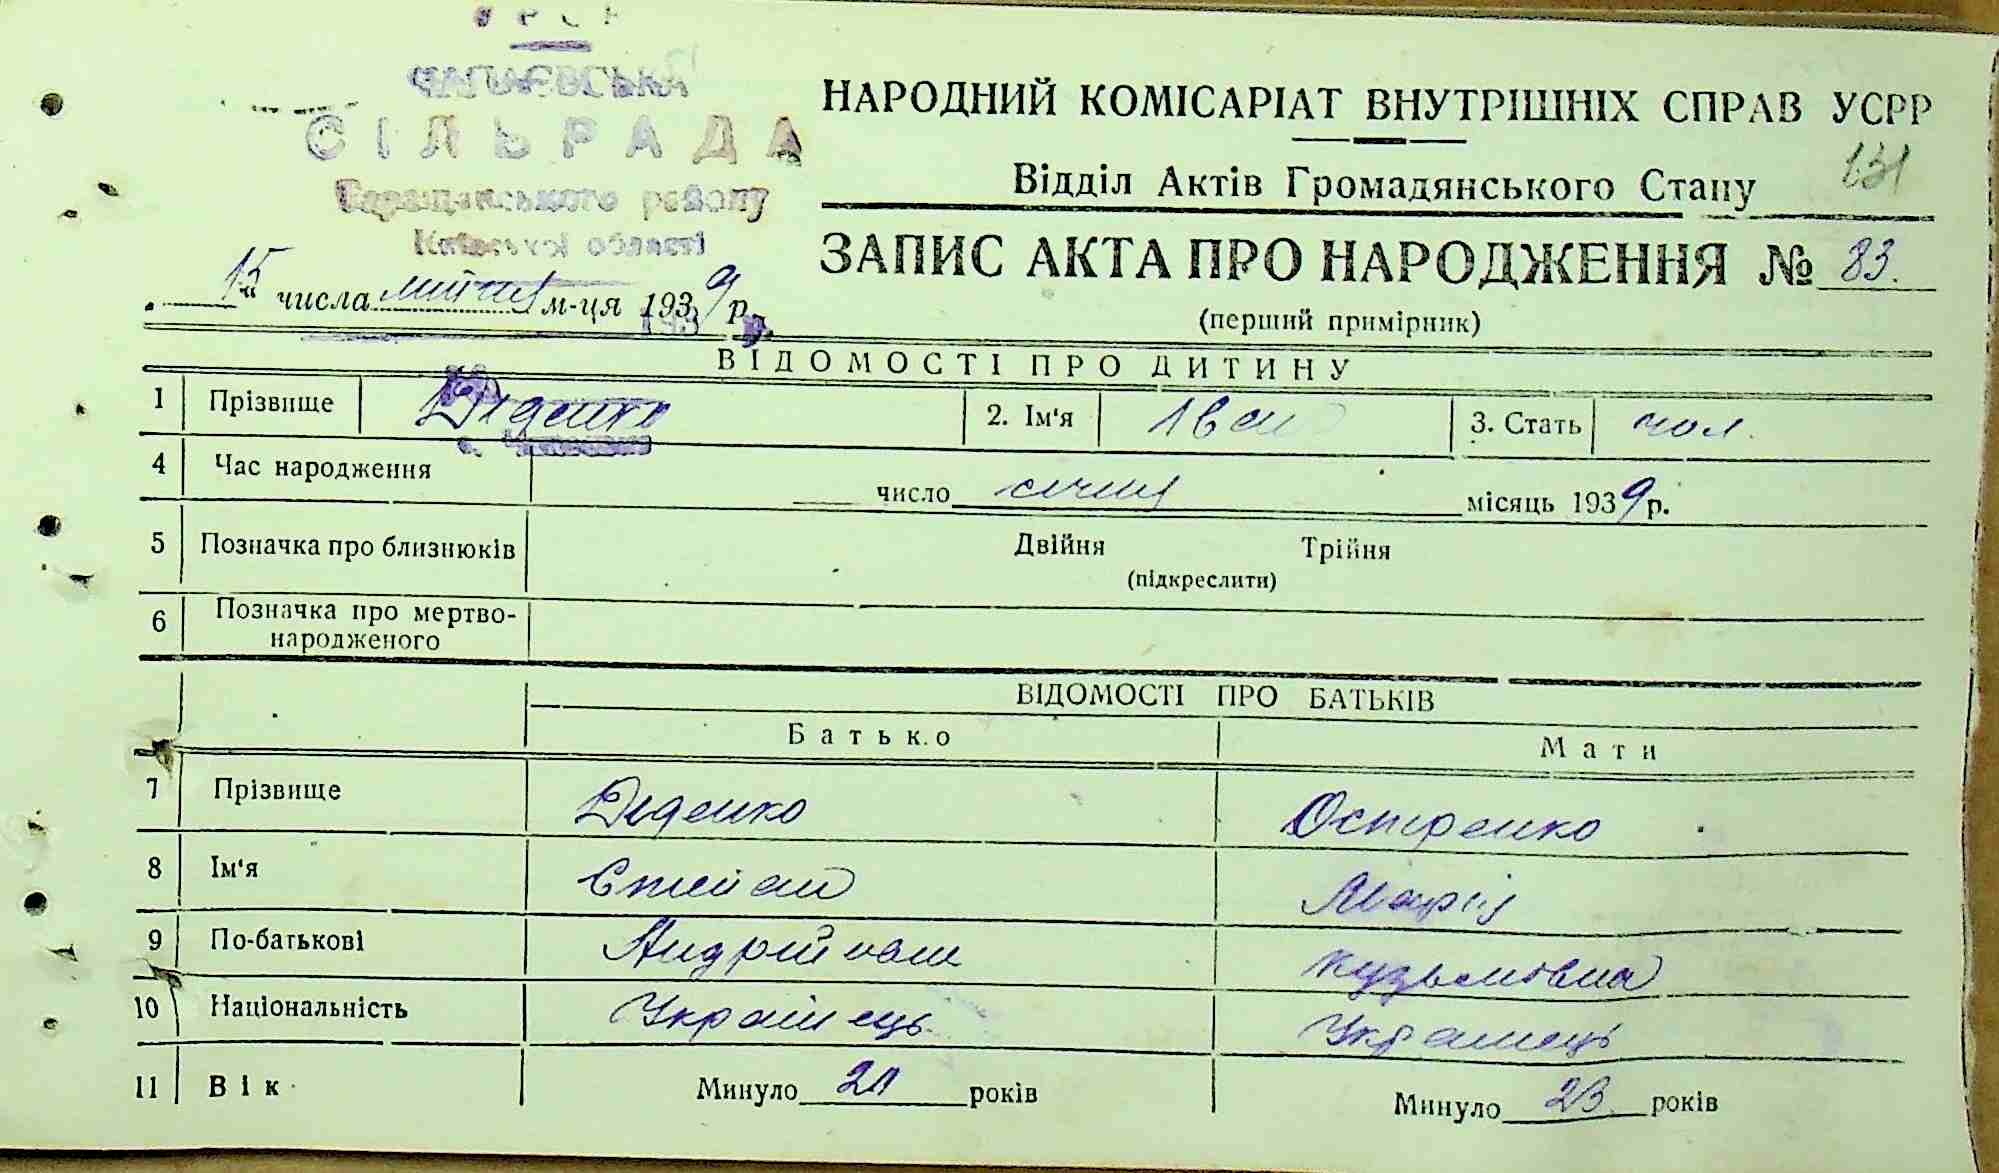 У Р С Р
ЧАПАЄВСЬКА
СІЛЬРАДА
Таращанського району
Київської області
НАРОДНИЙ КОМІСАРІАТ ВНУТРІШНІХ СПРАВ УСРР
131
Відділ Актів Громадянського Стану
ЗАПИС АКТА ПРО НАРОДЖЕННЯ № 83.
(перший примірник)
15 числа м-ця 1939 р.
ВІДОМОСТІ ПРО ДИТИНУ
1 Прізвище Діденко 2. Ім'я Іван 3. Стать чол.
4 Час народження число січня місяць 1939 р.
5 Позначка про близнюків Двійня Трійня
(підкреслити)
6 Позначка про мертво-
народженого
ВІДОМОСТІ ПРО БАТЬКІВ
Батько Мати
7 Прізвище Діденко Остренко
8 Ім'я Степан Марія
9 По-батькові Андрійович Кузьмівна
10 Національність Українець Українець
11 Вік Минуло років Минуло 23 років